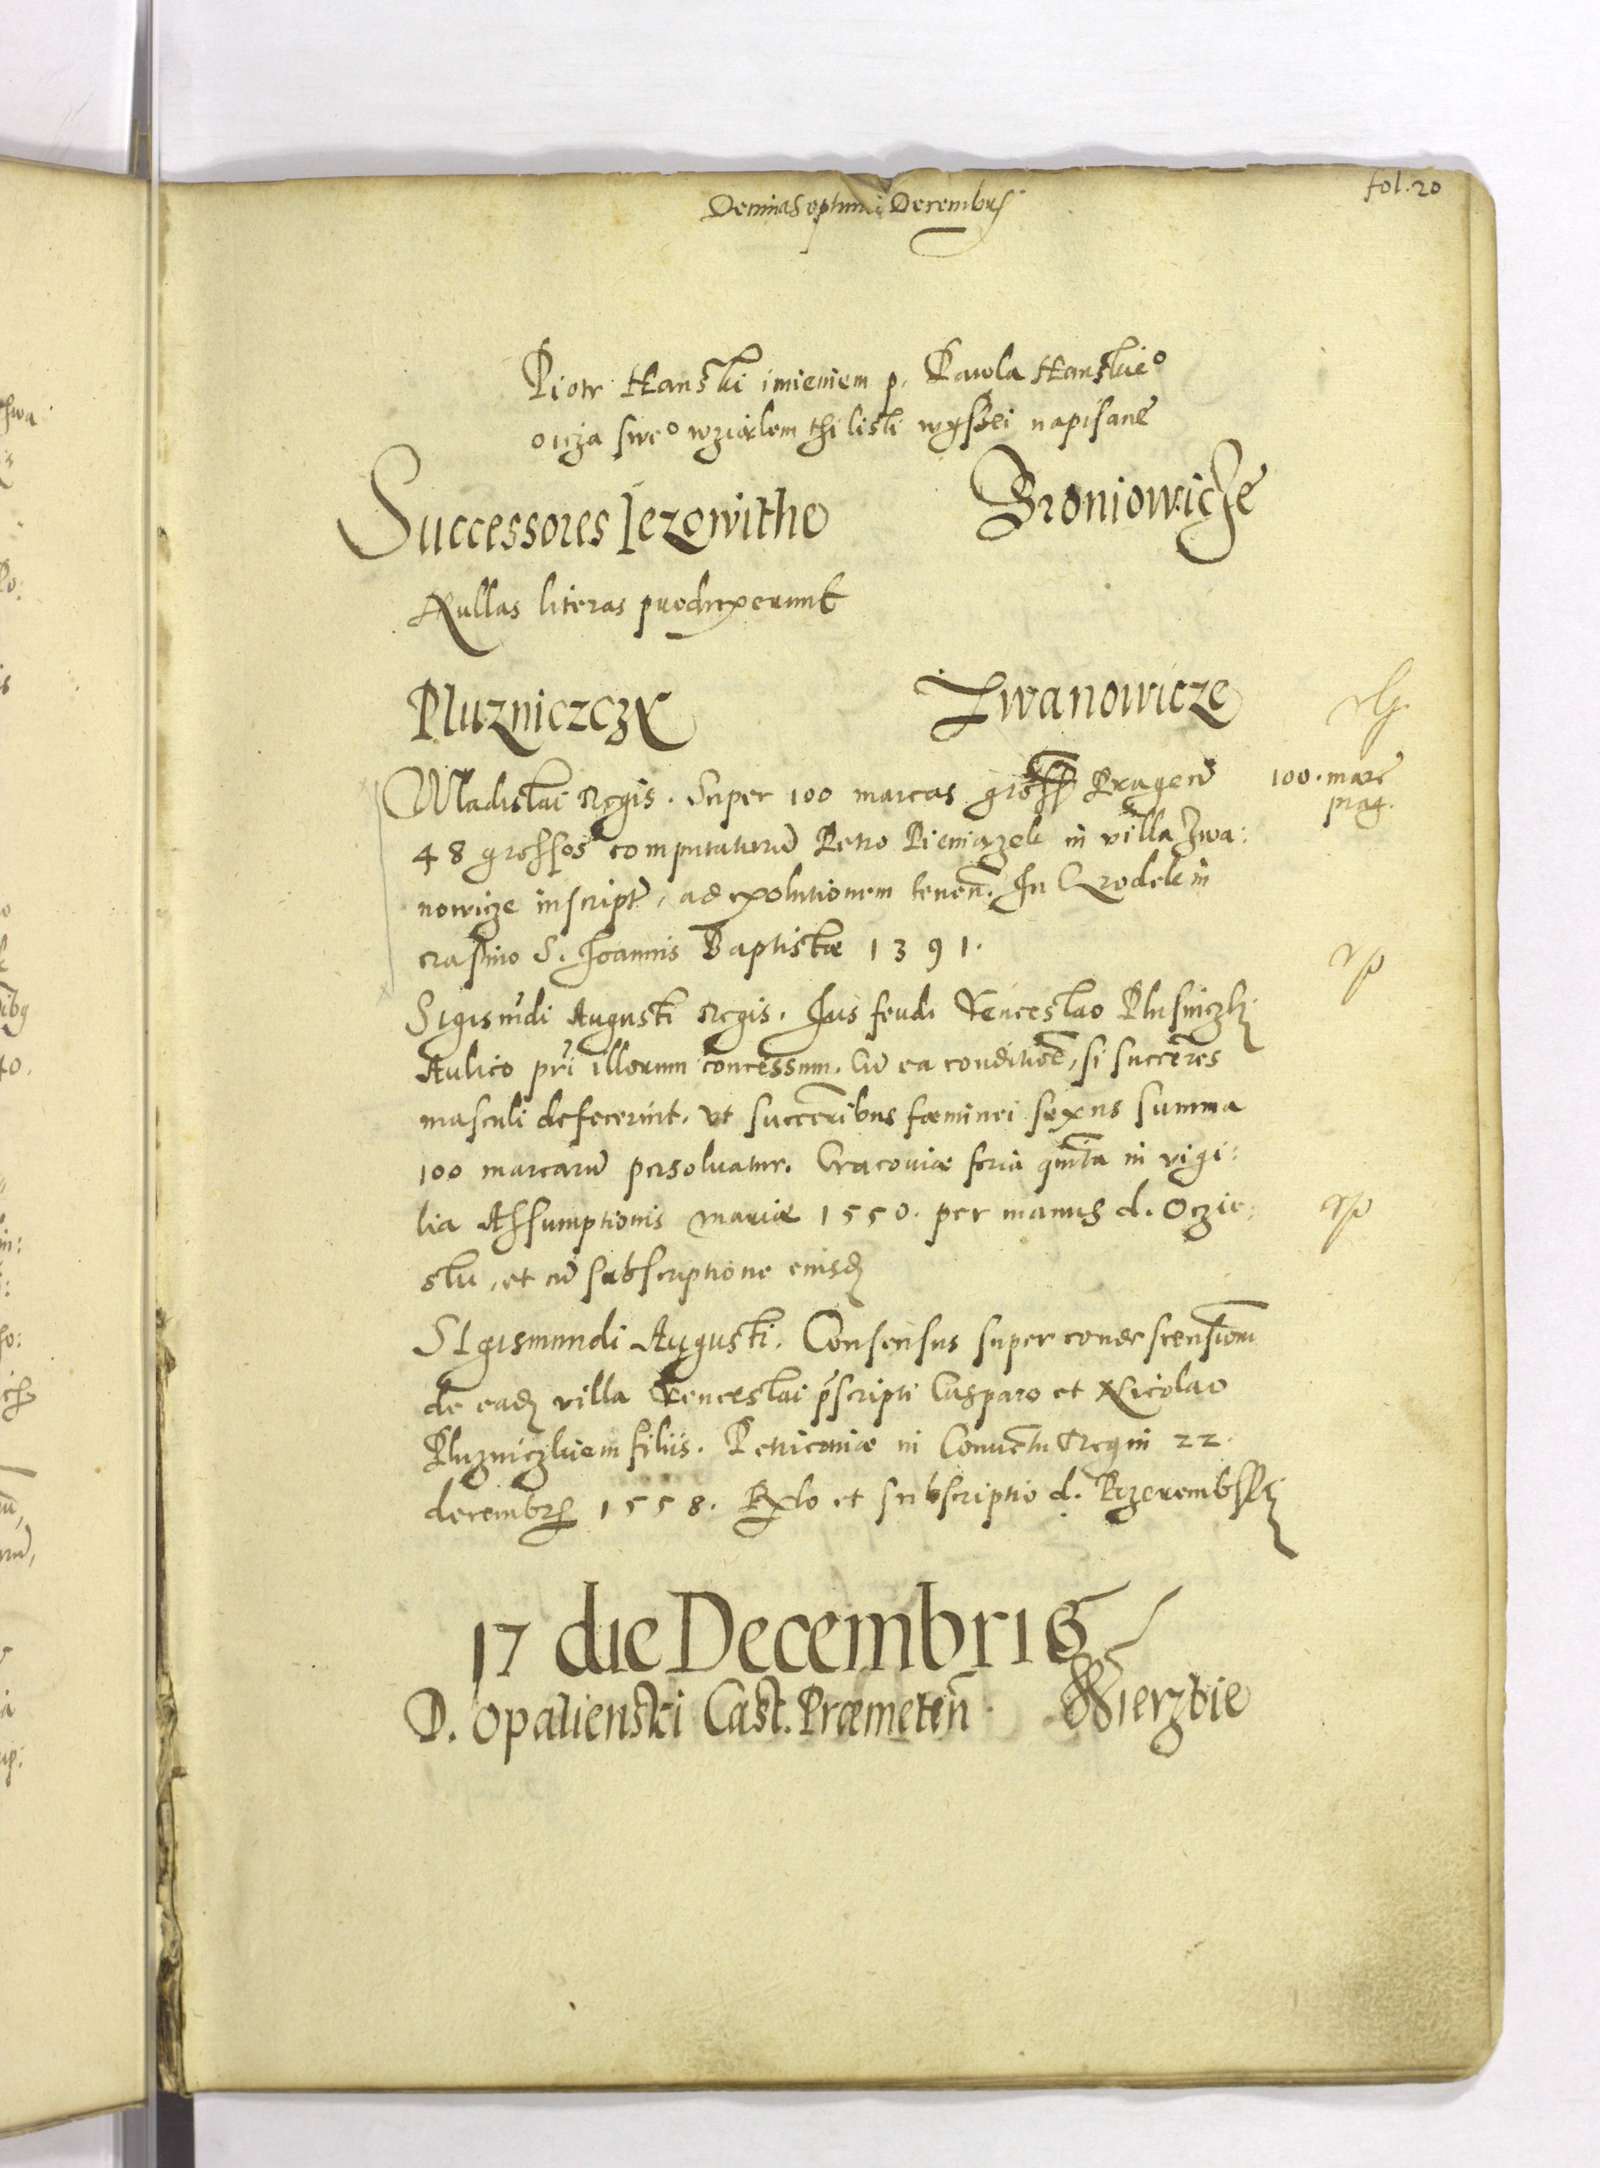 Decimaseptima Decembris
fol. 20
Piotr Hanski imieniem p. Pawla Hanskie°
oicza swe° wzialem thi listi wyszei napisane
Successores Jezowithe Broniowicze
Nullas literas produxerunt
Pluzniczczy Iwanowicze
Wladislai Regis. Super 100 marcas gross Pragen 100. marc
prag.
48 grossos computatur Petro Pieniazek in villa Iwa:
nowicze inscript, ad exolutionem tenen. In Grodek in
crastino S. Joannis Baptistæ 1391.
Sigismudi Augusti Regis. Jus feudi Venceslao Plusniczki
Aulico pri illorum concessum. Cu ea conditioe, si succeres
masculi defecerint. Vt succeribus fœminei sexus summa
100 marcaru persoluatur. Cracoviæ feria quinta in vigi:
lia Assumptionis Mariæ 1550. per manus d. Oczie:
sku, et cu subscriptione eiusd
Sigismundi Augusti. Consensus super condescensiom
de ead villa Venceslai pscripti Casparo et Nicolao
Pluzniczkiem filiis. Petricoviæ in Conuetu Regni 22
decembrs 1558. Rxlo et subscriptio d. Przerembski
17 die Decembris
D. Opalienski Cast. Præmeten Wierzbie